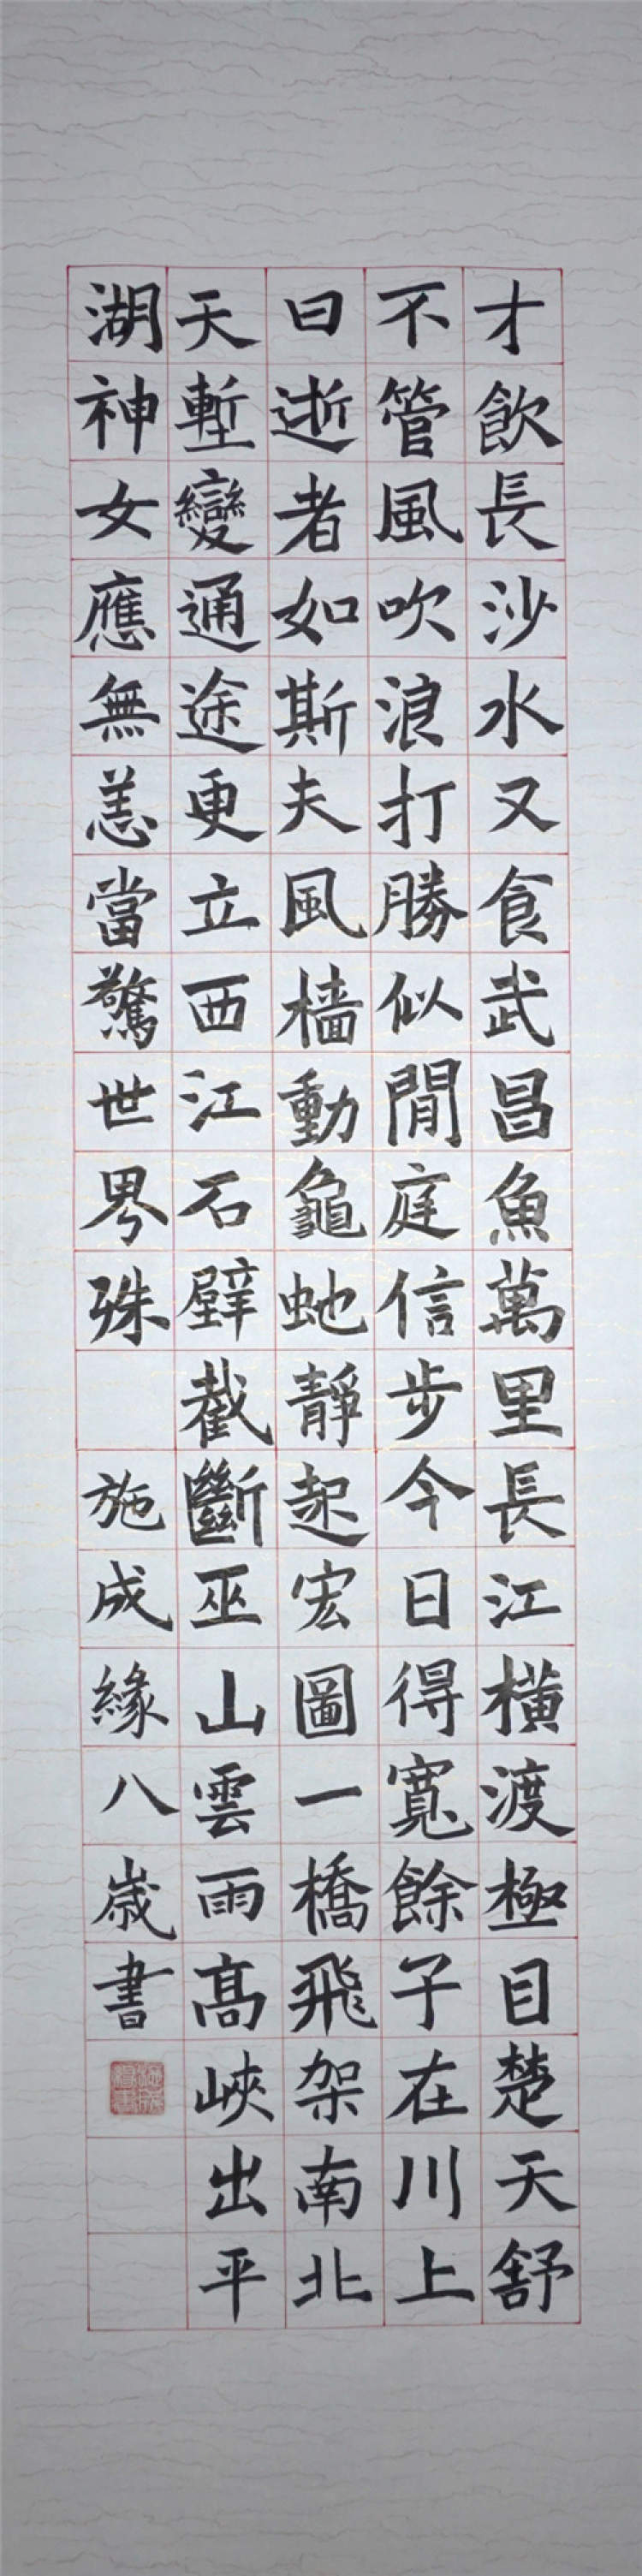 才飲長沙水又食武昌魚萬里長江橫渡極目楚天舒
不管風吹浪打勝似閒庭信步今日得寬餘子在川上
曰逝者如斯夫風檣動龜虵靜起宏圖一橋飛架南北
天塹變通途更立西江石壁截斷巫山雲雨高峽出平
湖神女應無恙當驚世界殊
施成緣八歲書